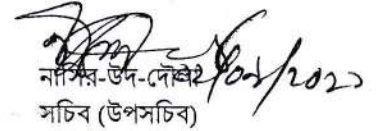 নাসির-উদ-দৌলা
সচিব (উপসচিব)